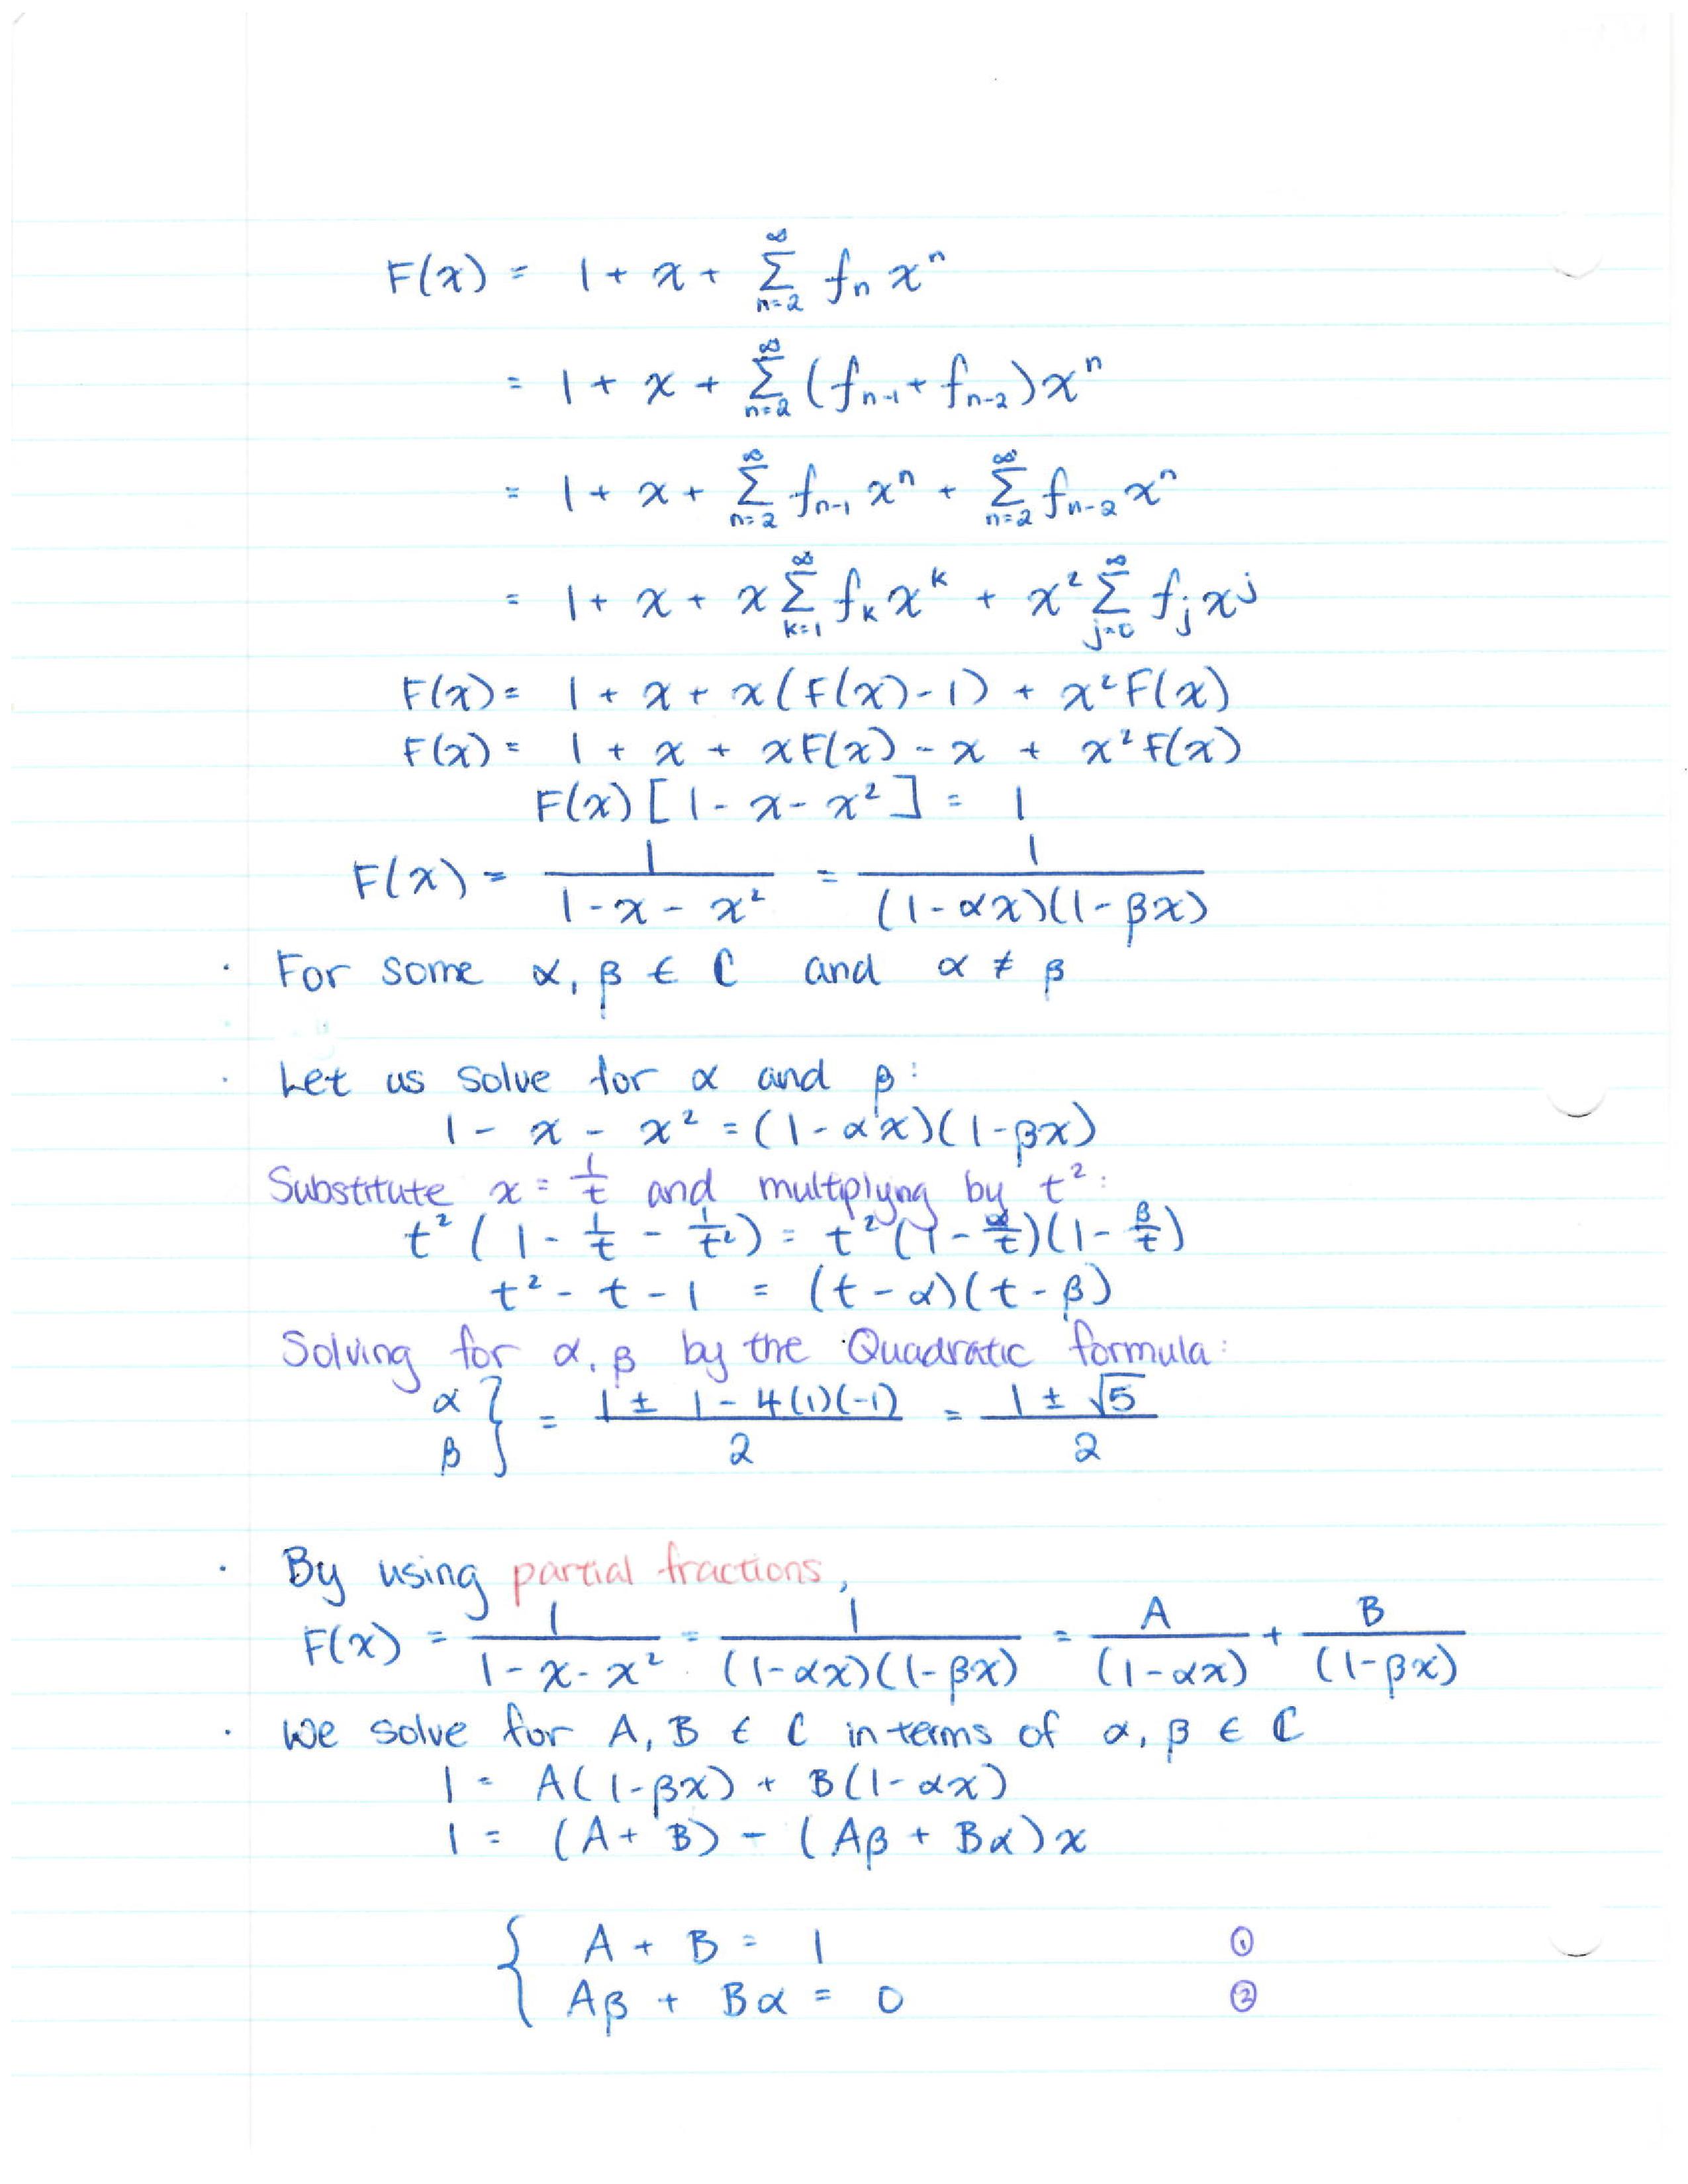 F(x) = 1 + x + ∑_{n=2}^{∞} f_n x^n
= 1 + x + ∑_{n=2}^{∞} (f_{n-1} + f_{n-2}) x^n
= 1 + x + ∑_{n=2}^{∞} f_{n-1} x^n + ∑_{n=2}^{∞} f_{n-2} x^n
= 1 + x + x ∑_{k=1}^{∞} f_k x^k + x^2 ∑_{j=0}^{∞} f_j x^j
F(x) = 1 + x + x(F(x) - 1) + x^2 F(x)
F(x) = 1 + x + xF(x) - x + x^2 F(x)
F(x) [1 - x - x^2] = 1
F(x) = \frac{1}{1 - x - x^2} = \frac{1}{(1 - αx)(1 - βx)}
· For some α, β ∈ ℂ and α ≠ β
· Let us solve for α and β:
1 - x - x^2 = (1 - αx)(1 - βx)
Substitute x = \frac{1}{t} and multiplyng by t^2:
t^2 (1 - \frac{1}{t} - \frac{1}{t^2}) = t^2 (1 - \frac{α}{t})(1 - \frac{β}{t})
t^2 - t - 1 = (t - α)(t - β)
Solving for α, β by the Quadratic formula:
α β } = \frac{1 ± 1 - 4(1)(-1)}{2} = \frac{1 ± √5}{2}
· By using partial fractions,
F(x) = \frac{1}{1 - x - x^2} = \frac{1}{(1 - αx)(1 - βx)} = \frac{A}{(1 - αx)} + \frac{B}{(1 - βx)}
· We solve for A, B ∈ ℂ in terms of α, β ∈ ℂ
1 = A(1 - βx) + B(1 - αx)
1 = (A + B) - (Aβ + Bα)x
{ A + B = 1 ①
Aβ + Bα = 0 ②